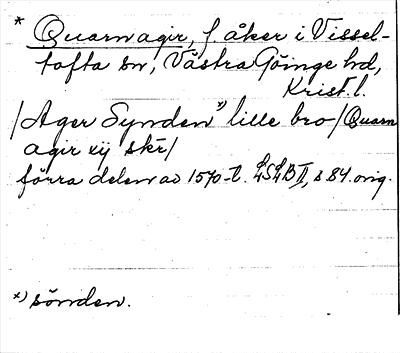 * Quarnagir, f. åker i Vissel-
tofta sn, Västra Göinge hd,
Krist. l.
/Ager Synden *) lille bro/Quarn
agir xij skr/
förra delen av 1570-t. LSLB II, s 84. orig.
*) sönden.